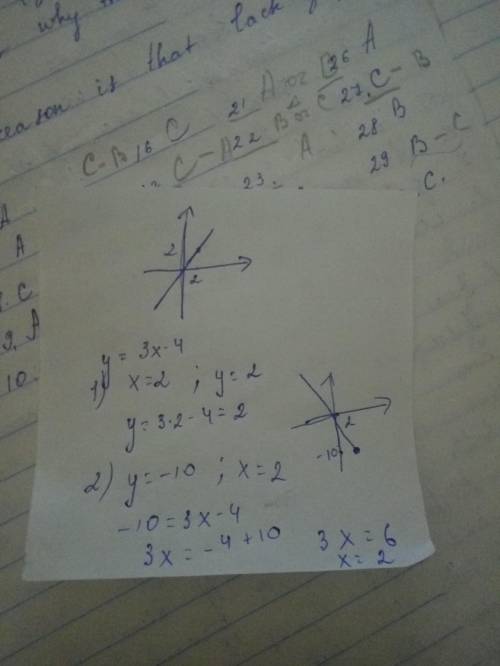 why
reason is that lack
C-B 16 C 21 A or B 26 A
C-A 22 B or C 27. C-B
A 28 B
23. 29 B-C
A C.
A
C
9. A
10.
2
2
y = 3x-4
1) x=2 ; y=2
y=3·2-4=2
2
-10
2) y=-10 ; x=2
-10=3x-4
3x=-4+10 3x=6
x=2